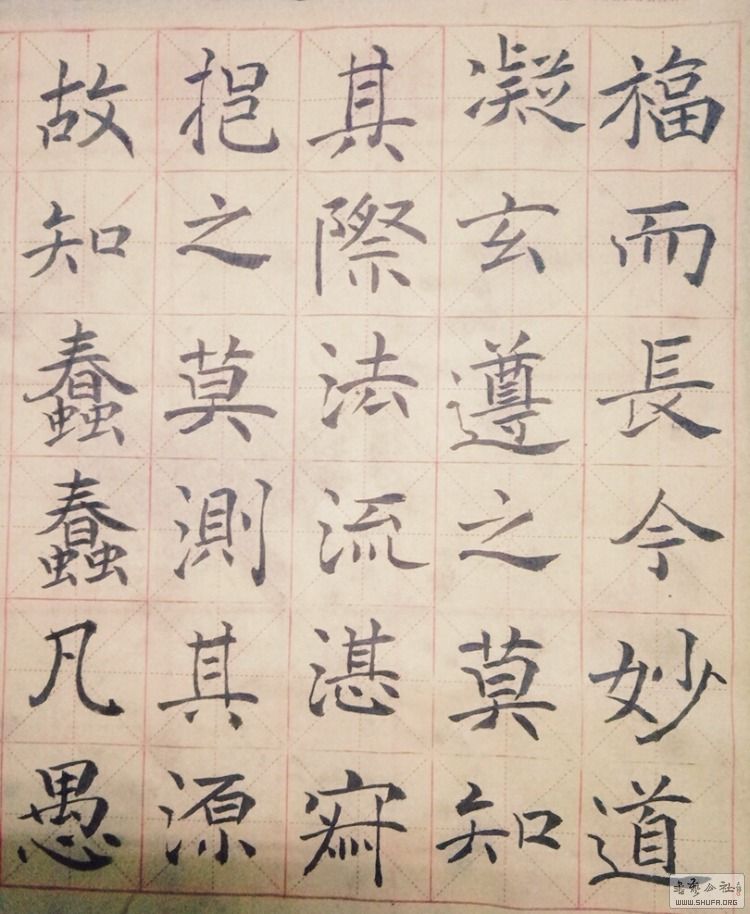 福而長今妙道
凝玄遵之莫知
其際法流湛寂
挹之莫測其源
故知蠢蠢凡愚
书艺公社
WWW.SHUFA.ORG